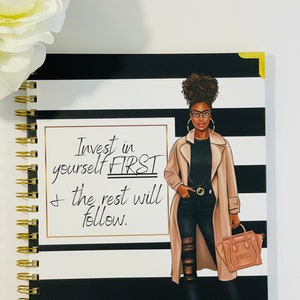 Invest in
yourself FIRST
& the rest will
follow.